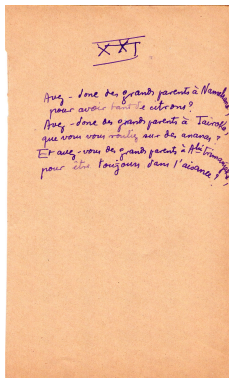 XXI
Avez-donc des grands parents à
pour avoir tant de citrons?
Avez-donc des grands parents à
que vous vous roulez sur des ananas?
Et avez-vous des grands parents à
pour être toujours dans l'aisance?